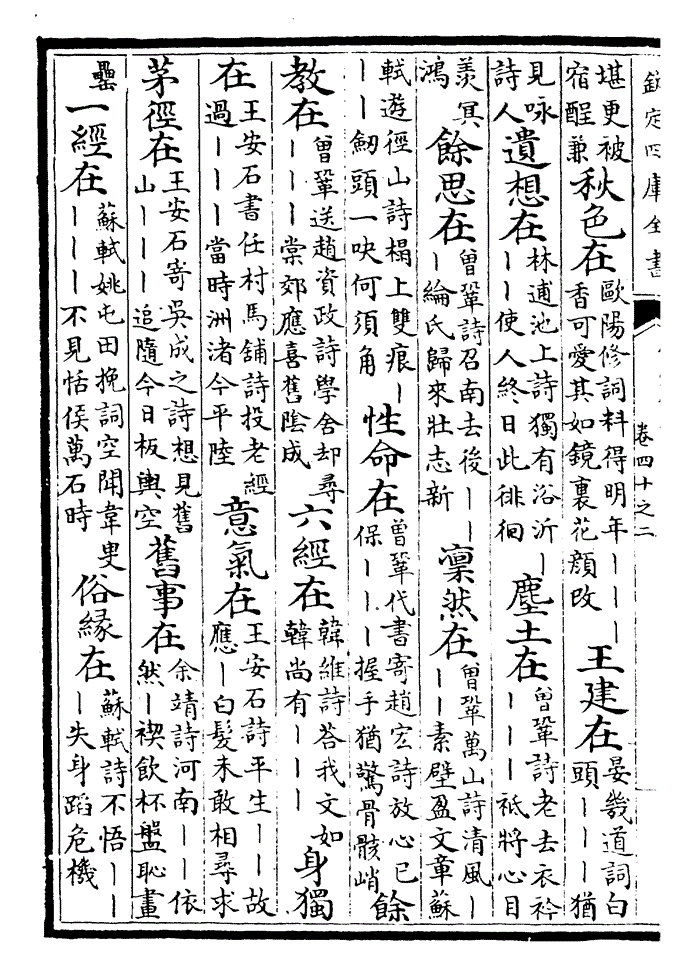 欽定四庫全書
卷四十之二
堪更被
宿酲兼
秋色在
歐陽修詞料得明年丨丨丨
香可愛其如鏡裏花顔改
王建在
晏幾道詞白
頭丨丨猶
見咏
詩人
遺想在
林逋池上詩獨有浴沂丨
丨丨使人終日此徘徊
塵土在
曾鞏詩老去衣衿
丨丨丨祗將心目
羨冥
鴻
餘思在
曾鞏詩召南去後丨丨
丨綸氏歸來壯志新
凛然在
曾鞏萬山詩清風丨
丨丨素壁盈文章蘇
軾遊徑山詩榻上雙痕丨
丨丨劒頭一吷何須角
性命在
曾鞏代書寄趙宏詩放心已
保丨丨丨握手猶驚骨骸峭
餘
教在
曾鞏送趙資政詩學舍却尋
丨丨丨棠郊應喜舊陰成
六經在
韓維詩荅我文如
韓尚有丨丨丨
身獨
在
王安石書任村馬舖詩投老經
過丨丨丨當時洲渚今平陸
意氣在
王安石詩平生丨丨故
應丨白髮未敢相尋求
茅徑在
王安石寄吳成之詩想見舊
山丨丨丨追隨今日板輿空
舊事在
余靖詩河南丨丨依
然丨禊飲杯盤恥畫
罍
一經在
蘇軾姚屯田挽詞空聞韋叟
丨丨丨不見恬侯萬石時
俗緣在
蘇軾詩不悟丨丨
丨失身蹈危機